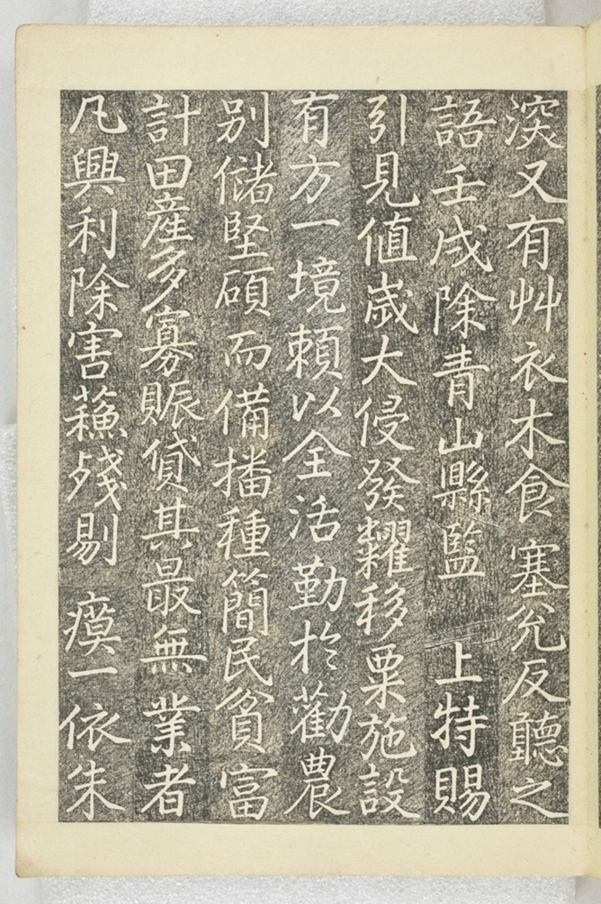 湥又有艸衣木食塞兊反聽之
語壬戌除靑山縣監 上特賜
引見値歲大侵發糶移粟施設
有方一境賴以全活勤於勸農
別儲堅碩而備播種簡民貧富
計田産多寡賑貸其最無業者
凡興利除害蘓殘剔瘼一依朱